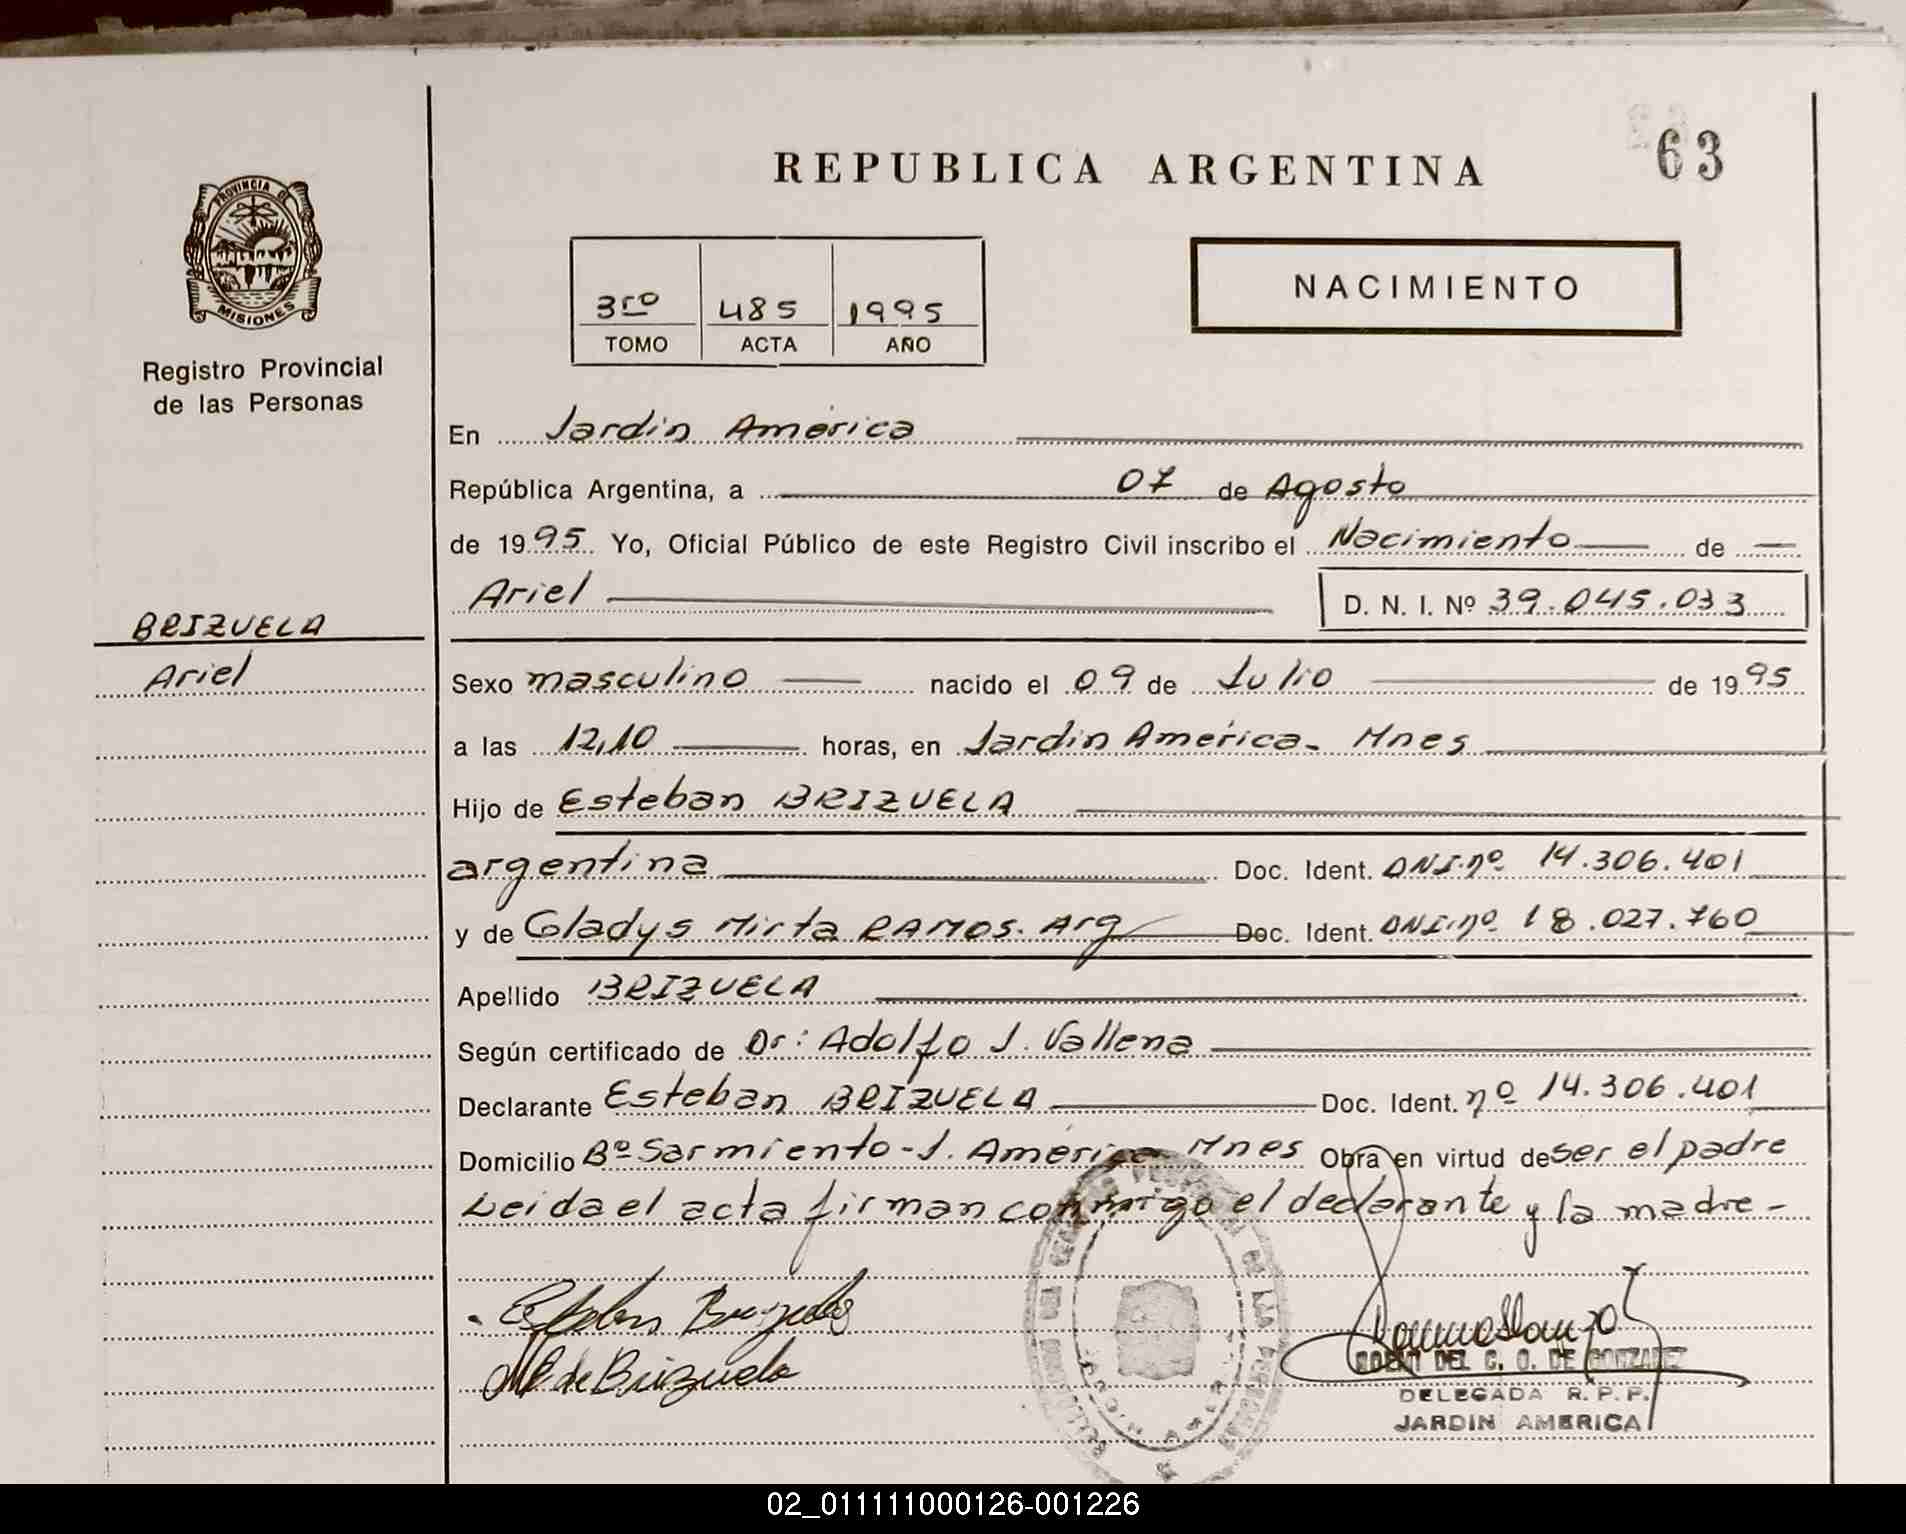 63
REPUBLICA ARGENTINA
PROVINCIA DE
MISIONES
NACIMIENTO
3ro 485 1995
TOMO ACTA AÑO
Registro Provincial
de las Personas
En Jardín América
República Argentina, a 07 de Agosto
de 1995 Yo, Oficial Público de este Registro Civil inscribo el Nacimiento de
Ariel D. N. I. Nº 39.045.033
BRIZUELA
Ariel
Sexo masculino nacido el 09 de Julio de 1995
a las 12,10 horas, en Jardín América. Mnes
Hijo de Esteban BRIZUELA
argentina Doc. Ident. DNI.nº 14.306.401
y de Gladys Mirta RAMOS. Arg Doc. Ident. DNI.nº 18.027.760
Apellido BRIZUELA
Según certificado de Dr: Adolfo J. Vallena
Declarante Esteban BRIZUELA Doc. Ident. nº 14.306.401
Domicilio Bº Sarmiento - J. América Mnes Obra en virtud de ser el padre
Leida el acta firman conmigo el declarante y la madre -
Esteban Brizuela
de Brizuela
DEL C. O. DE GONZALEZ
DELEGADA R. P. P.
JARDIN AMERICA
02_011111000126-001226